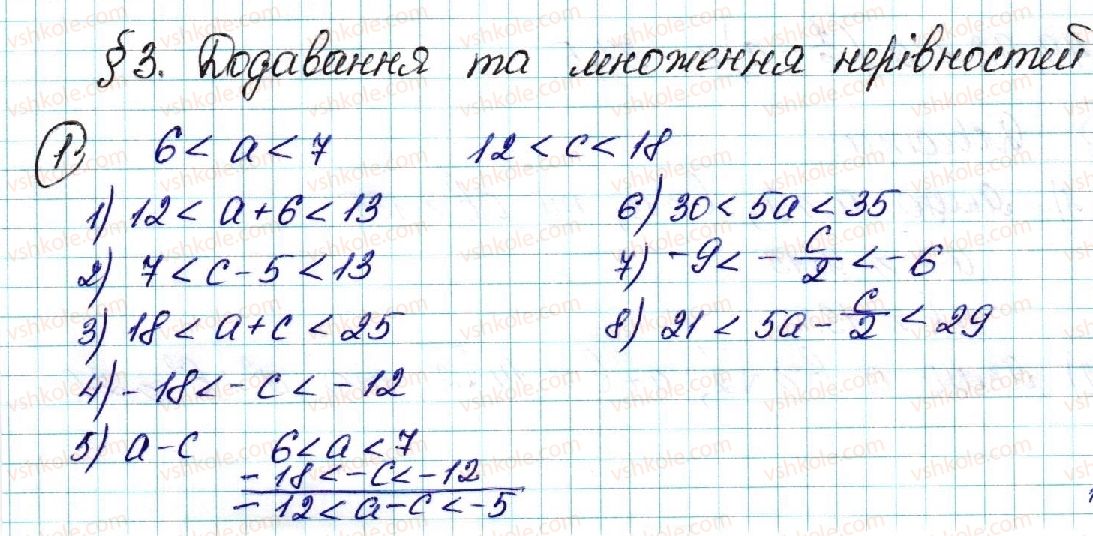 §3. Додавання та множення нерівностей
1. 6 < a < 7 12 < c < 18
1) 12 < a + 6 < 13
2) 7 < c - 5 < 13
3) 18 < a + c < 25
4) - 18 < - c < - 12
5) a - c 6 < a < 7
- 18 < - c < - 12
- 12 < a - c < - 5
6) 30 < 5a < 35
7) - 9 < - c/2 < - 6
8) 21 < 5a - c/2 < 29